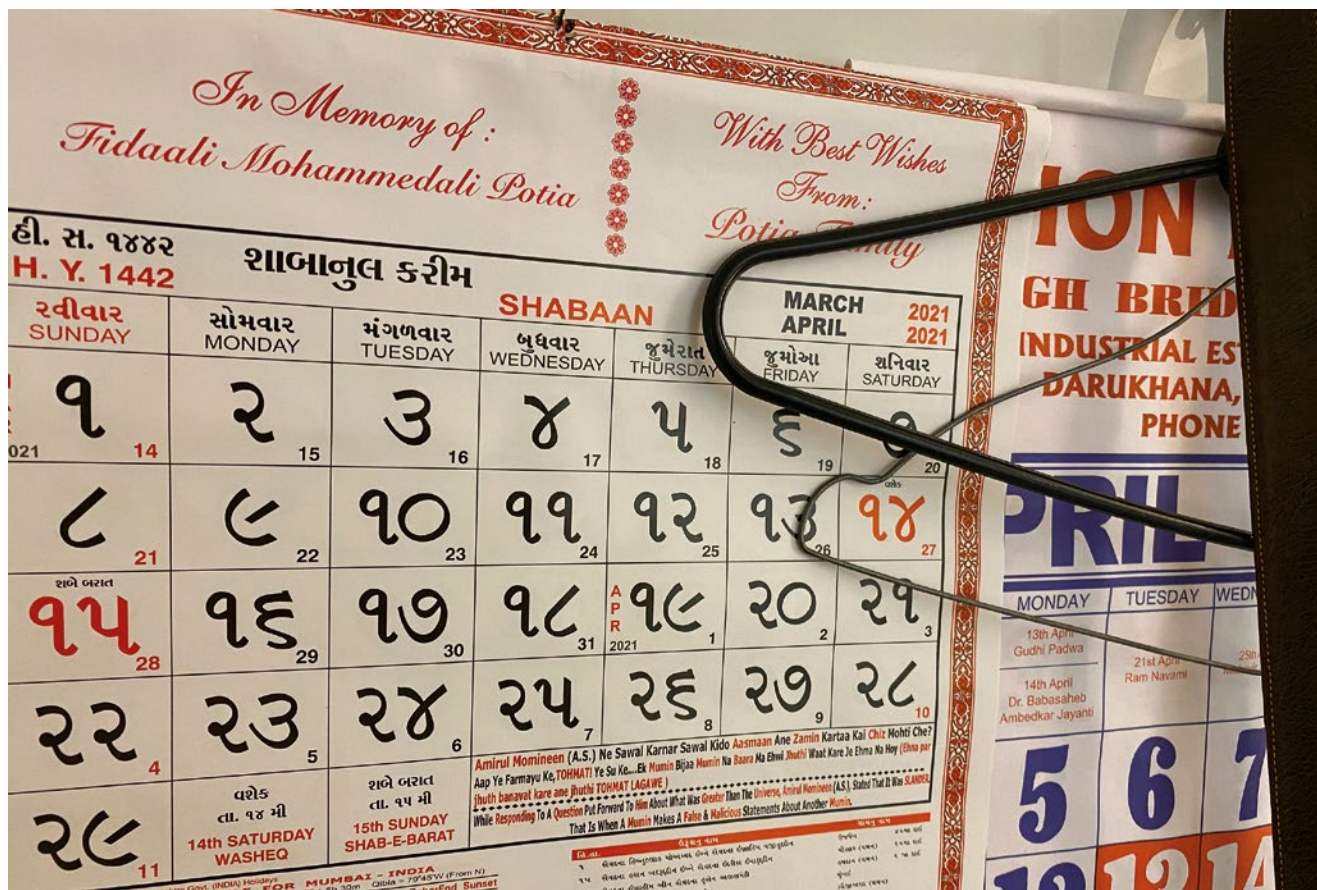 In Memory of :
Fidaali Mohammedali Potia
With Best Wishes
From:
Potia Family
હી. સ. ૧૪૪૨
H. Y. 1442
શાબાનુલ કરીમ
SHABAAN
MARCH 2021
APRIL 2021
રવીવાર સોમવાર મંગળવાર બુધવાર જુમેરાત જુમોઆ શનિવાર
SUNDAY MONDAY TUESDAY WEDNESDAY THURSDAY FRIDAY SATURDAY
૧ ૨ ૩ ૪ ૫ ૬ ૭
14 15 16 17 18 19 20
વશેક
૮ ૯ ૧૦ ૧૧ ૧૨ ૧૩ ૧૪
21 22 23 24 25 26 27
શબે બરાત
૧૫ ૧૬ ૧૭ ૧૮ APR ૧૯ ૨૦ ૨૧
28 29 30 31 2021 1 2 3
૨૨ ૨૩ ૨૪ ૨૫ ૨૬ ૨૭ ૨૮
4 5 6 7 8 9 10
૨૯
11
વશેક
તા. ૧૪ મી
14th SATURDAY
WASHEQ
શબે બરાત
તા. ૧૫ મી
15th SUNDAY
SHAB-E-BARAT
Amirul Momineen (A.S.) Ne Sawal Karnar Sawal Kido Aasmaan Ane Zamin Kartaa Kai Chiz Mohti Che?
Aap Ye Farmayu Ke,TOHMAT! Ye Su Ke....Ek Mumin Bijaa Mumin Na Baara Ma Ehwi Jhuthi Waat Kare Je Ehma Na Hoy (Ehna par
jhuth banavat kare ane jhuthi TOHMAT LAGAWE )
While Responding To A Question Put Forward To Him About What Was Greater Than The Universe, Amirul Momineen (A.S.), Stated That It Was SLANDER,
That Is When A Mumin Makes A False & Malicious Statements About Another Mumin.
Govt. (INDIA) Holidays
FOR MUMBAI - INDIA
Qibla = 79°45'W (From N)
End Sunset
ION
GH BRID
INDUSTRIAL ES
DARUKHANA,
PHONE
PRIL
MONDAY TUESDAY WEDN
13th April
Gudhi Padwa
14th April
Dr. Babasaheb
Ambedkar Jayanti
21st April
Ram Navami
25th
5 6 7
12 13 14